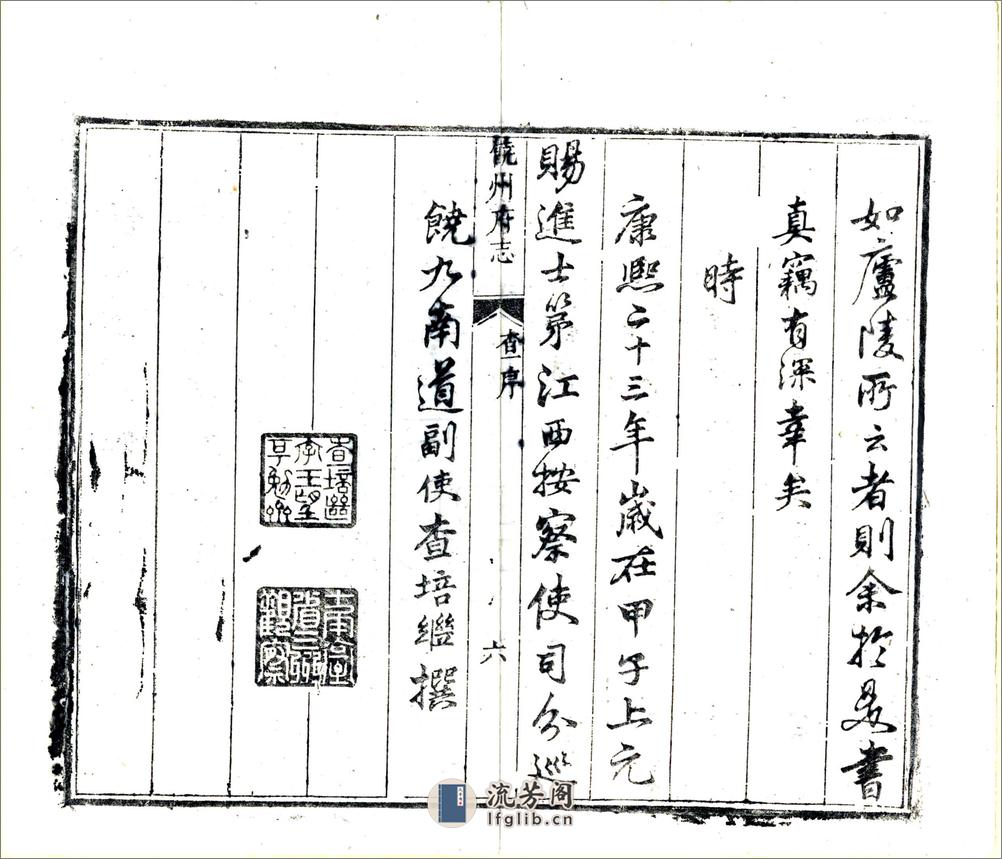 如廬陵所云者則余於是書
真竊有深幸矣
時
康熙二十三年歲在甲子上元
賜進士第江西按察使司分巡
饒州府志
查序
六
饒九南道副使查培繼撰
查培繼
字王望
號勉
流芳阁
lfglib.cn